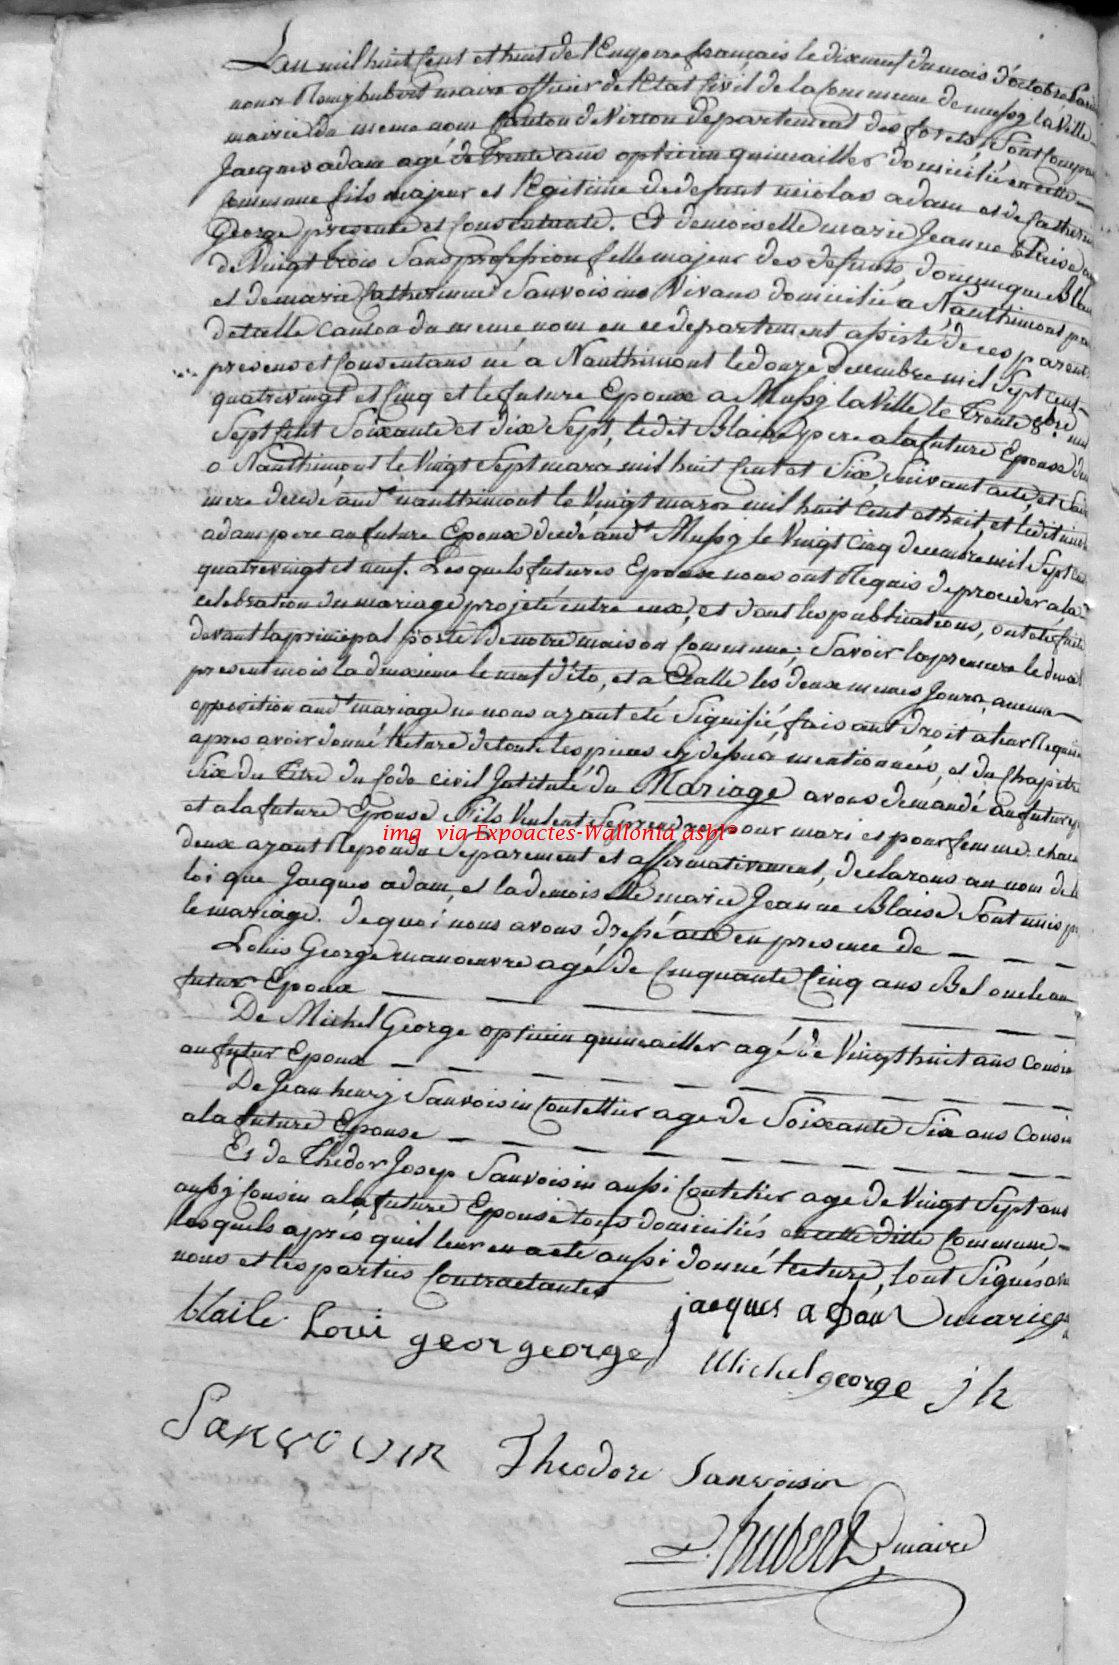 L'an mil huit Cent et huit de l'Empire français le dixneuf du mois d'octobre
nous Remy hubert maire officier de l'Etat Civil de la Commune de mussy la Ville
mairie de meme nom Canton de Virton departement des forets, Sont Compar
Jacques adam agé de Trente ans opticien quincailler domicilié en cette
Commune fils majeur et légitime de defunt nicolas adam et de Catherine
George presente et Consentante. Et demoiselle marie Jeanne Blaise
de Vingt trois Sans profession fille majeur des defunts, dominique Blai
et de marie Catherinne Sauvoisin Vivans domicilié a Nanthimont
detalle Canton du meme nom en ce departement assisté de ces parents
presens et Consentans né a Nanthimont le douze decembre mil Sept Cent
quatrevingt et Cinq et le future Epoux a Mussy la Ville le Trente 9bre mil
Sept Cent Soixante et dix Sept, le dit Blaise pere a la future Epouse
a Nanthimont le Vingt Sept mars mil huit Cent et Six, Suivant acte, et Sa
mere decedé aud^t nanthimont le Vingt mars mil huit Cent et huit, et ledit nicolas
adam pere au future Epoux decedé aud^t Mussy le Vingt Cinq decembre mil Sept Cent
quatrevingt et neuf. Les quels futures Epoux nous ont Requis de proceder a la
celebration du mariage projeté entre eux, et dont les publications, ont été faite
devant la principal porte de notre maison Commune; Savoir la premiere le deux
present mois la deuxieme le neuf d'ito, et a Etalle les deux memes Jours, aucune
opposition aud^t mariage ne nous ayant été Signifié, faisant droit a leur Requis
apres avoir donné lecture de toute les pieces cy dessus mentionnées, et du Chapitre
Six du Titre du Code Civil Intitulé du Mariage avons demandé au futur
et a la future Epouse s'ils Veulent Se prendre pour mari et pour femme. Chacun
img via Expoactes-Wallonia asbl°
deux ayant Repondu Separement et affirmativement, declarons au nom de la
loi que Jacques adam, et la demoiselle marie Jeanne Blaise Sont unis par
le mariage. de quoi nous avons dressé acte en presence de
Louis George manoeuvre agé de Cinquante Cinq ans Bel oncle au
futur Epoux
De Michel George opticien quincailler agé de Vingt huit ans Cousin
au futur Epoux
De Jean henry Sauvoisin Coutellier age de Soixante Six ans Cousin
a la future Epouse
Et de Thedor Josep Sauvoisin aussi Coutelier age de Vingt Sept ans
aussy Cousin a la future Epouse tous domiciliés en cette ditte Commune
lesquels après qu'il leur en a été aussi donné lecture, l'ont Signés avec
nous et les parties Contractantes
jacques adam marie
blaise Loui georgeorge
Michel george j h
Sanvoisin Theodore Sanvoisin
R. hubert maire